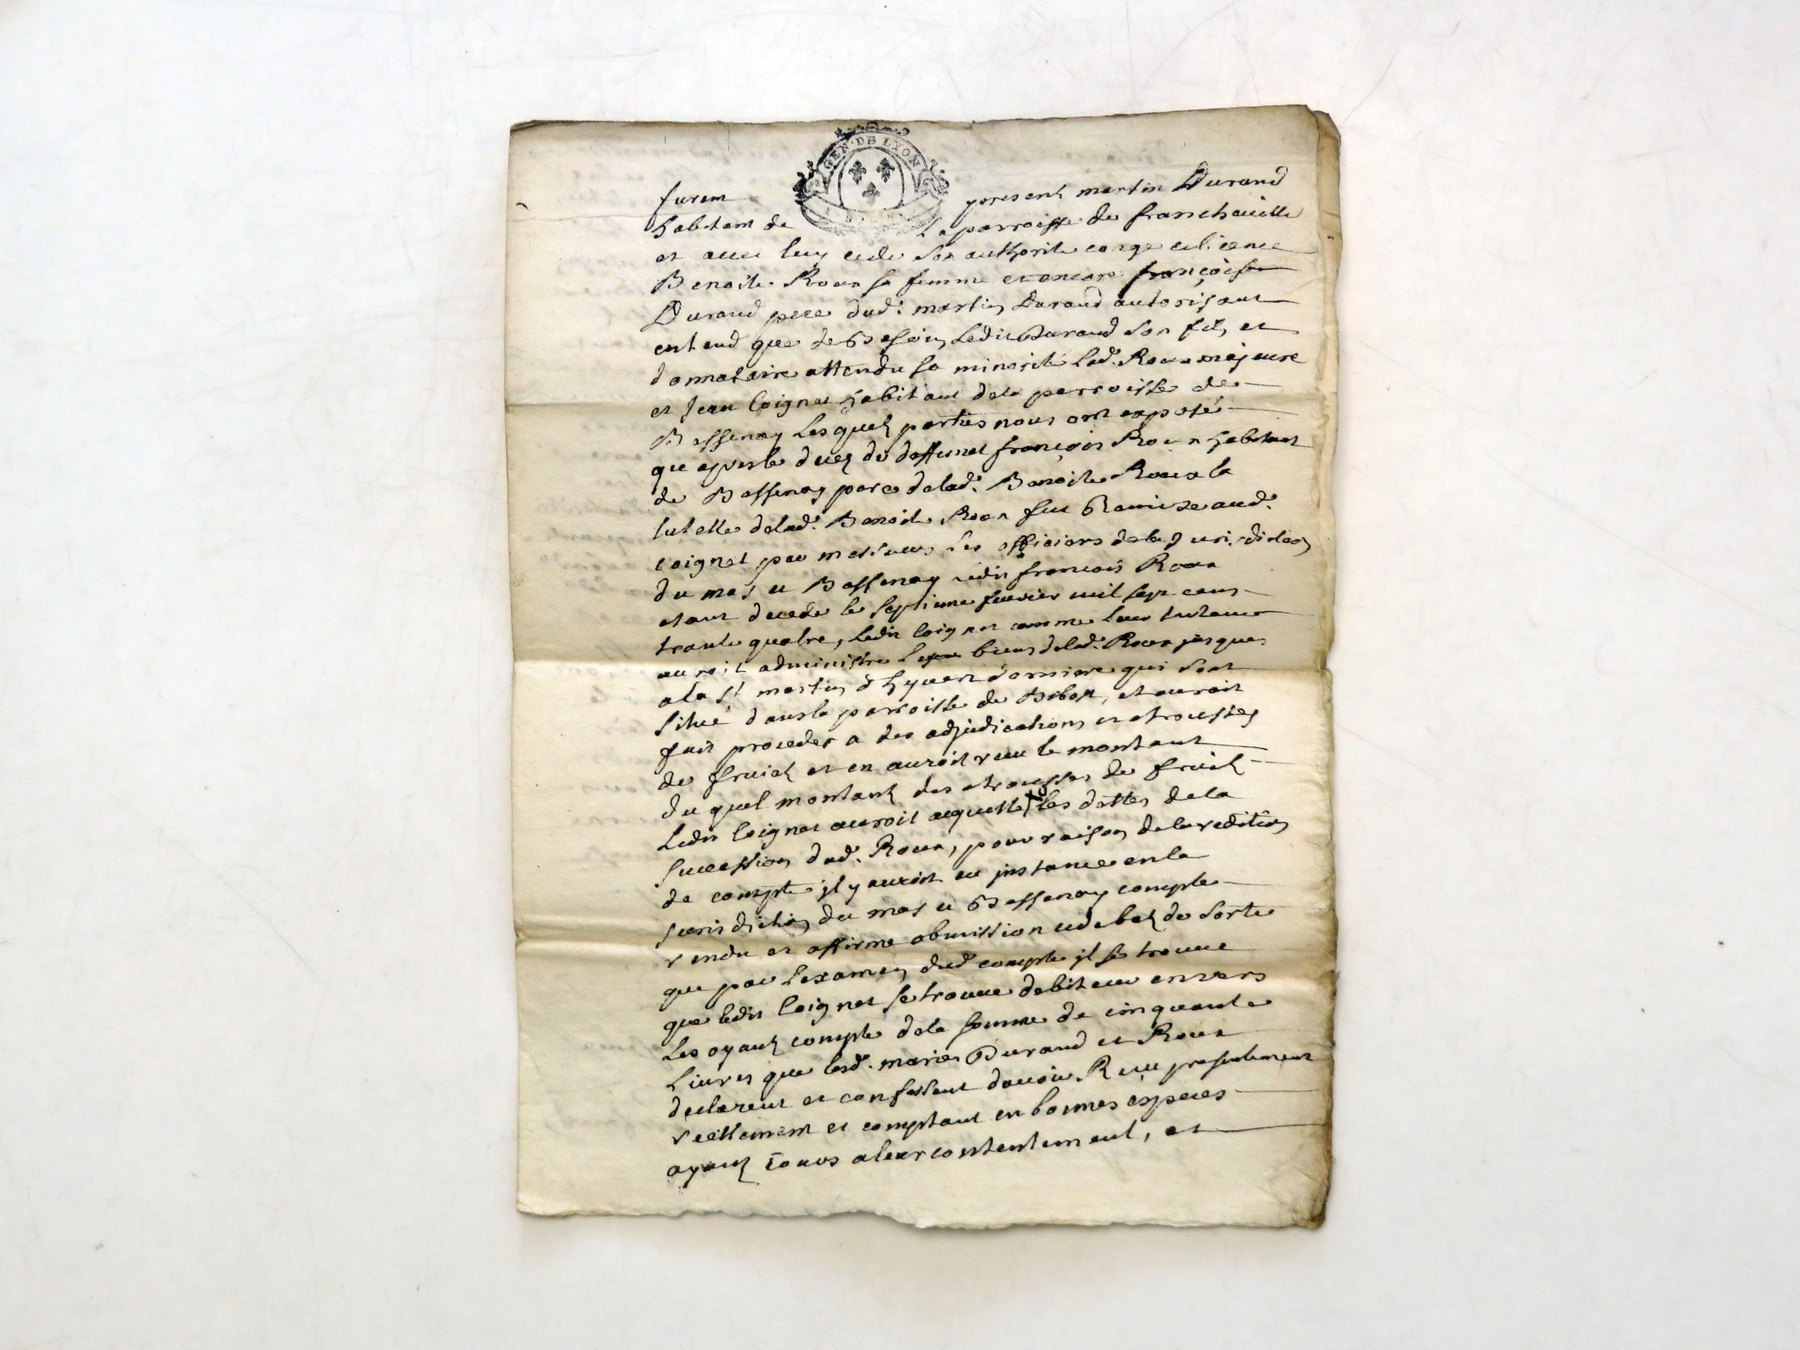 GEN · DE LYON
furem present martin Durand
habitam de La parroisse de francheuille
et avec luy et de son authorité congé et licence
Benoite Roux sa femme et encore françois
Durand pere dud. martin Durand autorisant
entend que de besoin Ledit Durand son fils et
donnataire attendu sa minorité Lad. Roux majeure
et Jean Coignet habitant dela parroisse de
Bessenay Lesquels parties nous ont exposé
que apres le decez de deffunct françois Roux habitant
de Bessenay pere delad. Benoite Roux la
tutelle delad. Benoite Roux fut Remise aud.
Coignet par messieurs Les officiers dela Jurisdiction
du mas et Bessenay ledit francois Roux
etant decedé le septieme fevrier mil sept cens
trante quatre, Ledit Coignet comme leur
auroit administré Les biens delad. Roux jusques
a la St martin d hyvert derniere qui sont
situé dans la parroisse de Bibost, et auroit
fait proceder a des adjudications et etrousses
de fruicts et en auroit receu le montant
du quel montant des etrousses de fruicts
Ledit Coignet auroit acquitté les dettes de la
sucession dud. Roux, pour raison de la reditions
de compte il y auroit eu instance en la
jurisdiction du mas et Bessenay compte
rendu et affirmé obmission et debats de sorte
que par Lexamen dud compte il se trouve
que ledit Coignet se trouve debiteur envers
Les oyants compte de la somme de cinquante
Livres que lesd. mariés Durand et Roux
declarent et confessent davoir Receu presentement
reellement et comptant en bonnes especes
ayants cours a leur contentement, et